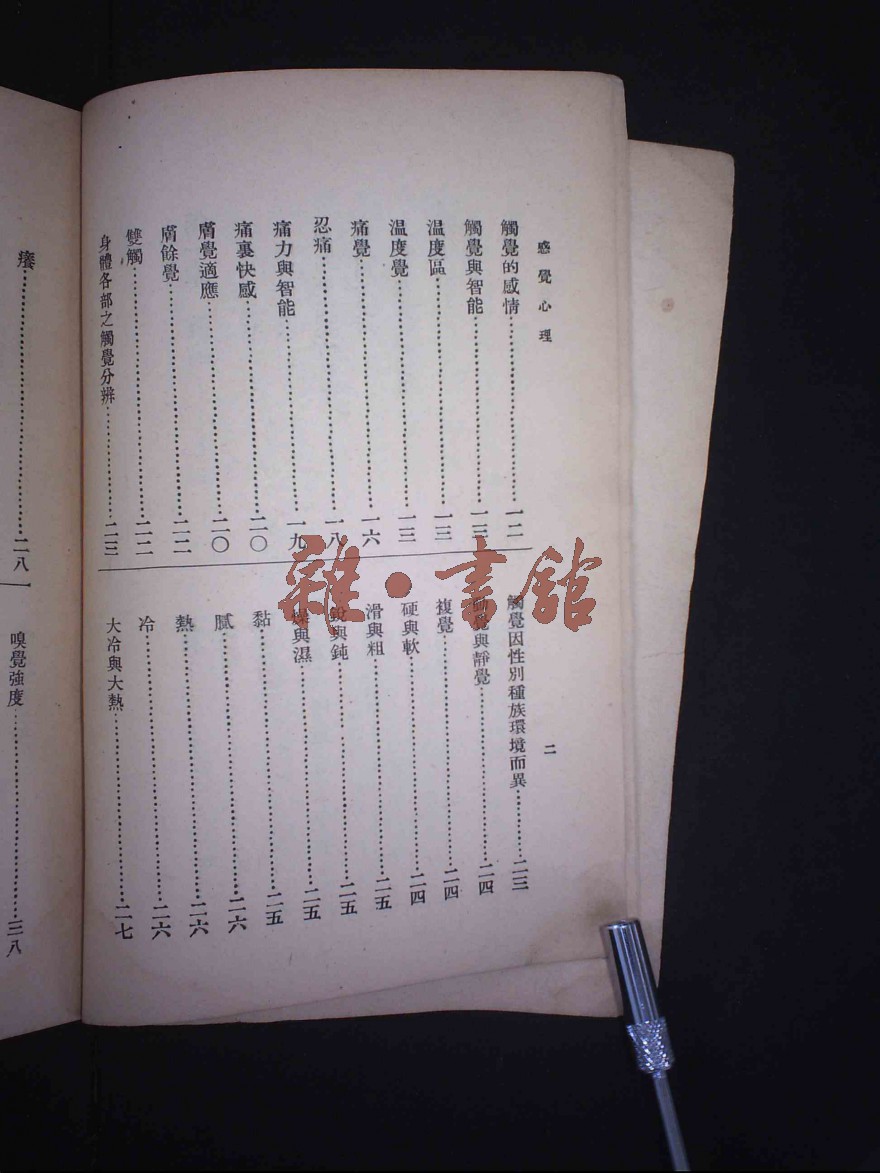 感覺心理
二
觸覺的感情一二
觸覺與智能一三
温度區一三
温度覺一三
痛覺一六
忍痛一八
痛力與智能一九
痛裏快感二〇
膚覺適應二〇
膚餘覺二二
雙觸二二
身體各部之觸覺分辨二三
觸覺因性別種族環境而異二三
動覺與靜覺二四
複覺二四
硬與軟二四
滑與粗二五
銳與鈍二五
燥與濕二五
黏二五
膩二六
熱二六
冷二六
大冷與大熱二七
癢二八
嗅覺強度三八
雜·書館